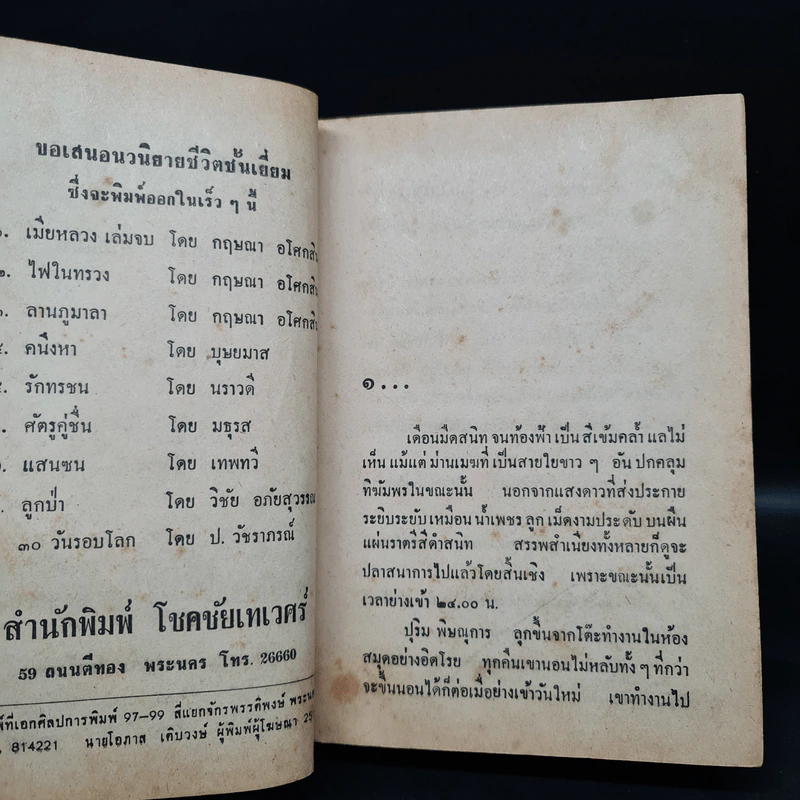 ขอเสนอนวนิยายชีวิตชั้นเยี่ยม
ซึ่งจะพิมพ์ออกในเร็ว ๆ นี้
เมียหลวง เล่มจบ โดย กฤษณา อโศกสิน
๒. ไฟในทรวง โดย กฤษณา อโศกสิน
ลานภูมาลา โดย กฤษณา อโศกสิน
คนึงหา โดย บุษยมาส
รักทรชน โดย นราวดี
ศัตรูคู่ชื่น โดย มธุรส
แสนซน โดย เทพทวี
ลูกป่า โดย วิชัย อภัยสุวรรณ
๓๐ วันรอบโลก โดย ป. วัชราภรณ์
สำนักพิมพ์ โชคชัยเทเวศร์
59 ถนนตีทอง พระนคร โทร. 26660
พ์ที่เอกศิลปการพิมพ์ 97-99 สี่แยกจักรพรรดิพงษ์ พระนค
814221 นายโอภาส เติบวงษ์ ผู้พิมพ์ผู้โฆษณา 25
๑...
เดือนมืดสนิท จนท้องฟ้า เป็น สีเข้มคล้ำ แลไม่
เห็น แม้แต่ ม่านเมฆที่ เป็นสายใยขาว ๆ อัน ปกคลุม
ทิฆัมพรในขณะนั้น นอกจากแสงดาวที่ส่งประกาย
ระยิบระยับ เหมือน น้ำเพชร ลูก เม็ดงามประดับ บนผืน
แผ่นราตรีสีดำสนิท สรรพสำเนียงทั้งหลายก็ดูจะ
ปลาสนาการไปแล้วโดยสิ้นเชิง เพราะขณะนั้นเป็น
เวลาย่างเข้า ๒๔.๐๐ น.
ปุริม พิษณุการ ลุกขึ้นจากโต๊ะทำงานในห้อง
สมุดอย่างอิดโรย ทุกคืนเขานอนไม่หลับทั้ง ๆ ที่กว่า
จะขึ้นนอนได้ก็ต่อเมื่อย่างเข้าวันใหม่ เขาทำงานไป